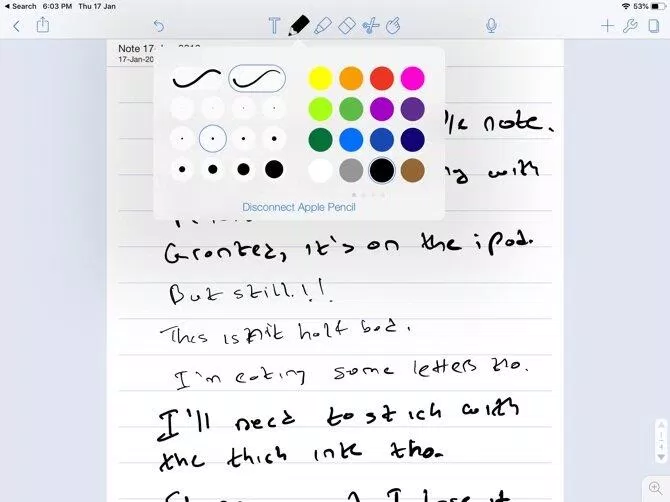 Search 6:03 PM Thu 17 Jan 53%
Note 17
17-Jan-20
note.
with
Disconnect Apple Pencil
Granted, it's on the iPad.
But still!!!
This isn't half bad.
I'm eating some letters tho.
I'll need to stick with
the thick ink tho.
I
it